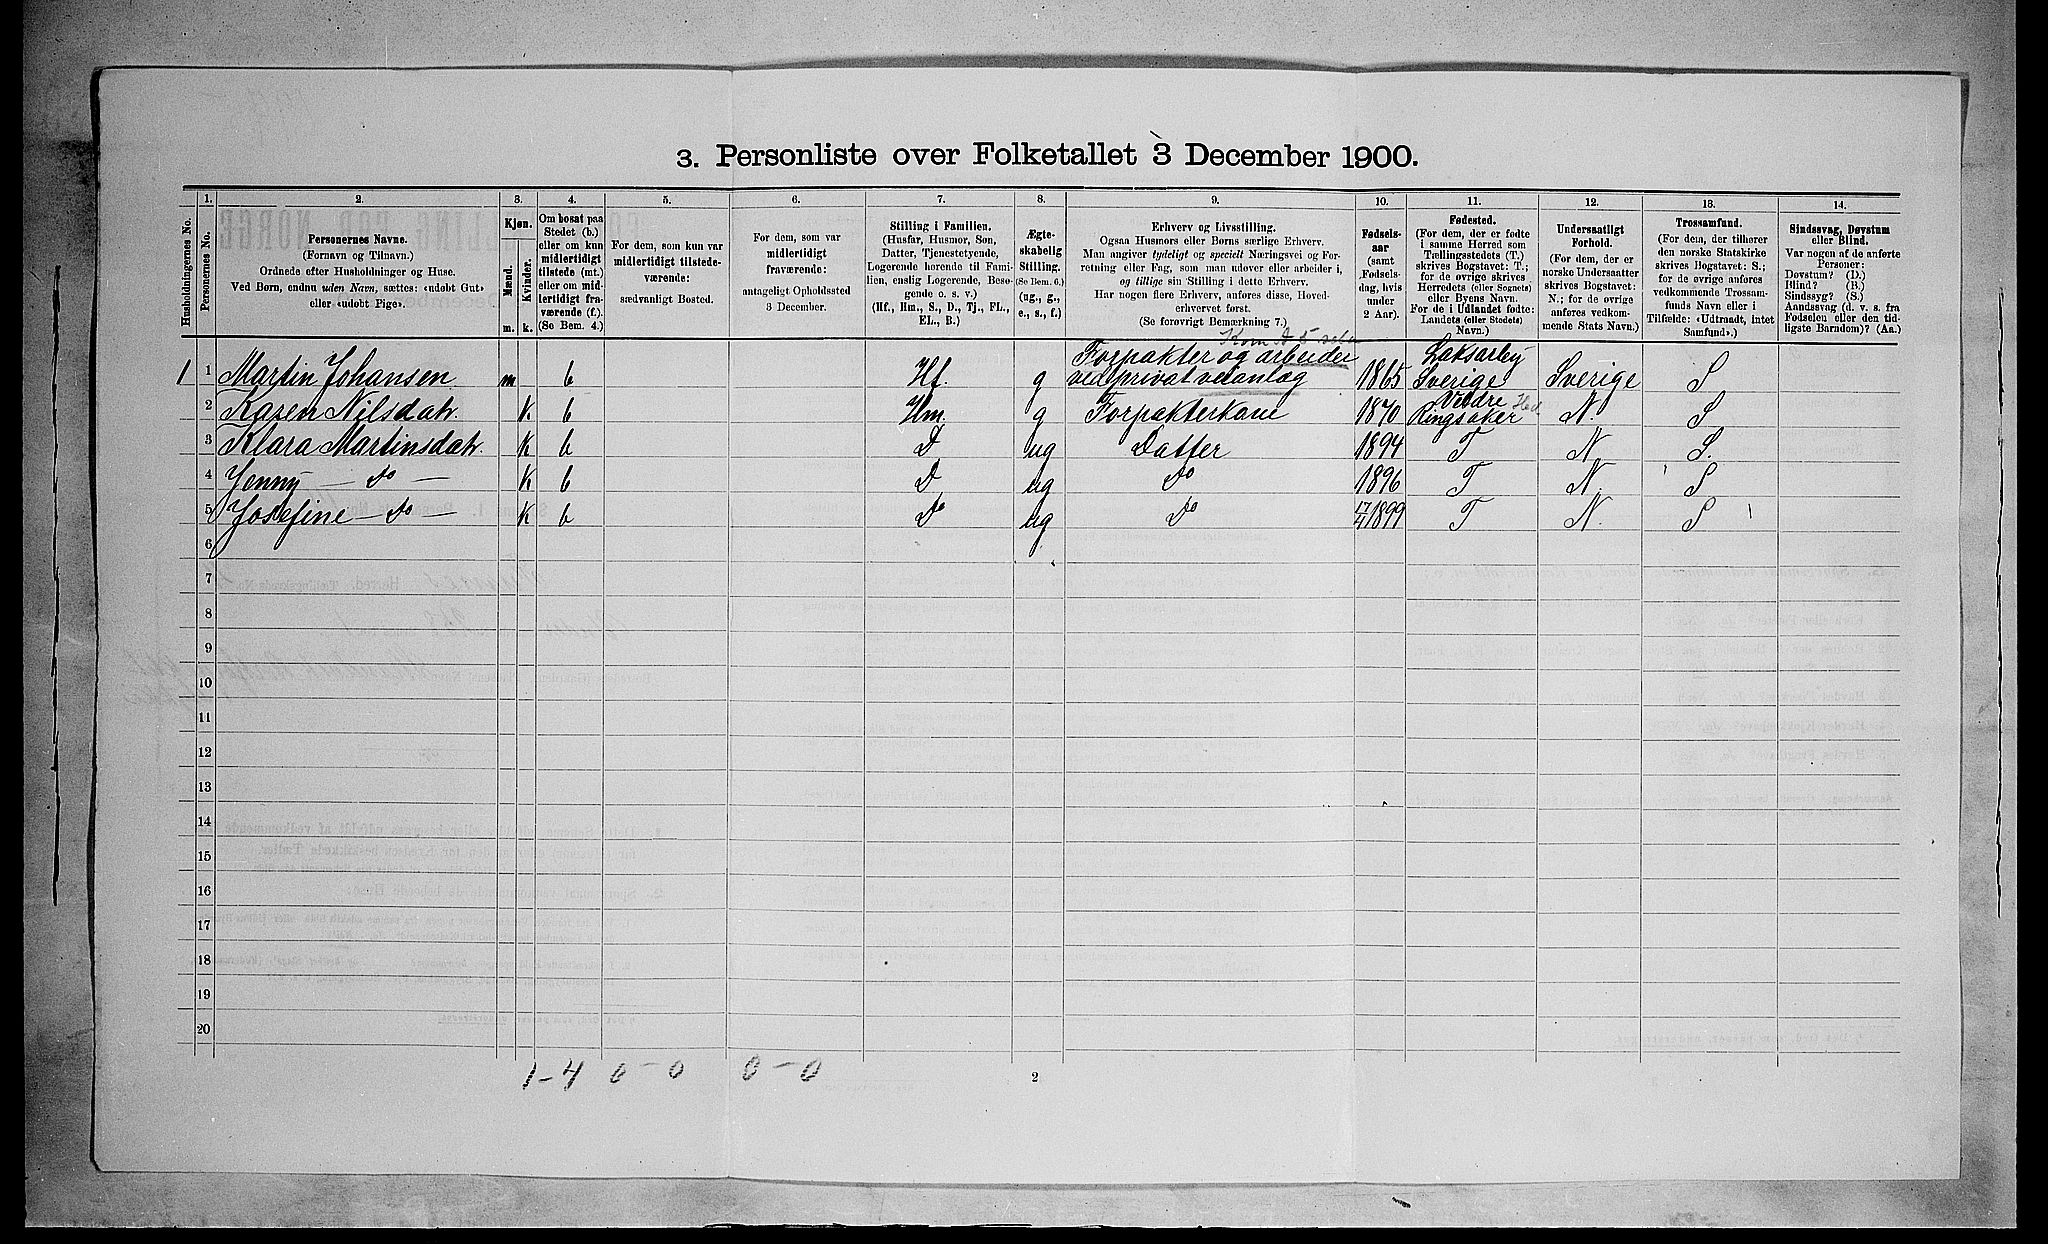 3. Personliste over Folketallet 3 December 1900.
1. 2. 3. 4. 5. 6. 7. 8. 9. 10. 11. 12. 13. 14.
Husholdningernes No.
Personernes No.
Personernes Navne.
(Fornavn og Tilnavn).
Ordnede efter Husholdninger og Huse.
Ved Børn, endnu uden Navn, sættes: «udøbt Gut»
eller «udøbt Pige».
Kjøn.
Mænd.
Kvinder.
m. k.
Om bosat paa
Stedet (b.)
eller om kun
midlertidigt
tilstede (mt.)
eller om mid-
lertidigt fra-
værende (f.).
(Se Bem. 4.)
For dem, som kun var
midlertidigt tilstede-
værende:
sædvanligt Bosted.
For dem, som var
midlertidigt
fraværende:
antageligt Opholdssted
3 December.
Stilling i Familien.
(Husfar, Husmor, Søn,
Datter, Tjenestetyende,
Logerende hørende til Fami-
lien, enslig Logerende, Besø-
gende o. s. v.)
(Hf., Hm., S., D., Tj., FL.,
EL., B.)
Ægte-
skabelig
Stilling.
(Se Bem. 6.)
(ug., g.,
e., s., f.)
Erhverv og Livsstilling.
Ogsaa Husmors eller Børns særlige Erhverv.
Man angiver tydeligt og specielt Næringsvei og For-
retning eller Fag, som man udøver eller arbeider i,
og tillige sin Stilling i dette Erhverv.
Har nogen flere Erhverv, anføres disse, Hoved-
erhvervet først.
(Se forøvrigt Bemærkning 7.)
Fødsels-
aar
(samt
Fødsels-
dag, hvis
under
2 Aar).
Fødested.
(For dem, der er fødte
i samme Herred som
Tællingsstedets (T.)
skrives Bogstavet: T.;
for de øvrige skrives
Herredets (eller Sognets)
eller Byens Navn.
For de i Udlandet fødte:
Landets (eller Stedets)
Navn.)
Undersaatligt
Forhold.
(For dem, der er
norske Undersaatter
skrives Bogstavet:
N.; for de øvrige
anføres vedkom-
mende Stats Navn.)
Trossamfund.
(For dem, der tilhører
den norske Statskirke
skrives Bogstavet: S.;
for de øvrige anføres
vedkommende Trossam-
funds Navn eller i
Tilfælde: «Udtraadt, intet
Samfund».)
Sindssvag, Døvstum
eller Blind.
Var nogen af de anførte
Personer:
Døvstum? (D.)
Blind? (B.)
Sindssyg? (S.)
Aandssvag (d. v. s. fra
Fødselen eller den tid-
ligste Barndom)? (Aa.)
1 1 Martin Johansen. m b Hf. g Forpakter og arbeider
ved privat veianlæg 1865 Laksarby
Sverige Sverige S
2 Karen Nilsdatr. K b Hm. g Forpakterkone 1870 Veldre
Ringsaker Hed. N. S
3 Klara Martinsdatr. K b D ug Datter 1894 T N S.
4 Jenny — Do — K b D ug Do 1896 T N. S
5 Josefine — Do — K b Do ug Do 17/4 1899 T N. S
6
7
8
9
10
11
12
13
14
15
16
17
18
19
20
1 – 4 0 – 0 0 – 0
2